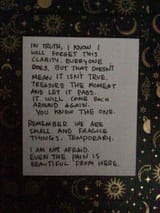 IN TRUTH, I KNOW I
WILL FORGET THIS
CLARITY. EVERYONE
DOES. BUT THAT DOESN'T
MEAN IT ISN'T TRUE.
TREASURE THE MOMENT
AND LET IT PASS.
IT WILL COME BACK
AROUND AGAIN.
YOU KNOW THE ONE.
REMEMBER WE ARE
SMALL AND FRAGILE
THINGS. TEMPORARY.
I AM NOT AFRAID.
EVEN THE PAIN IS
BEAUTIFUL FROM HERE.